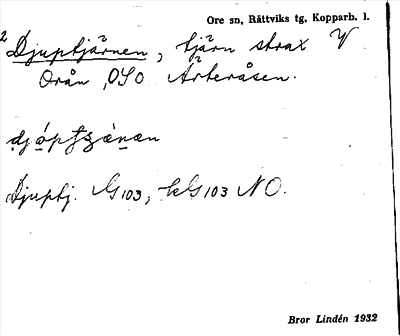 Ore sn, Rättviks tg, Kopparb. l.
2 Djuptjärnen, tjärn strax V
Orån, OSO Årteråsen.
Djuptj. G103, kG103 NO.
Bror Lindén 1932